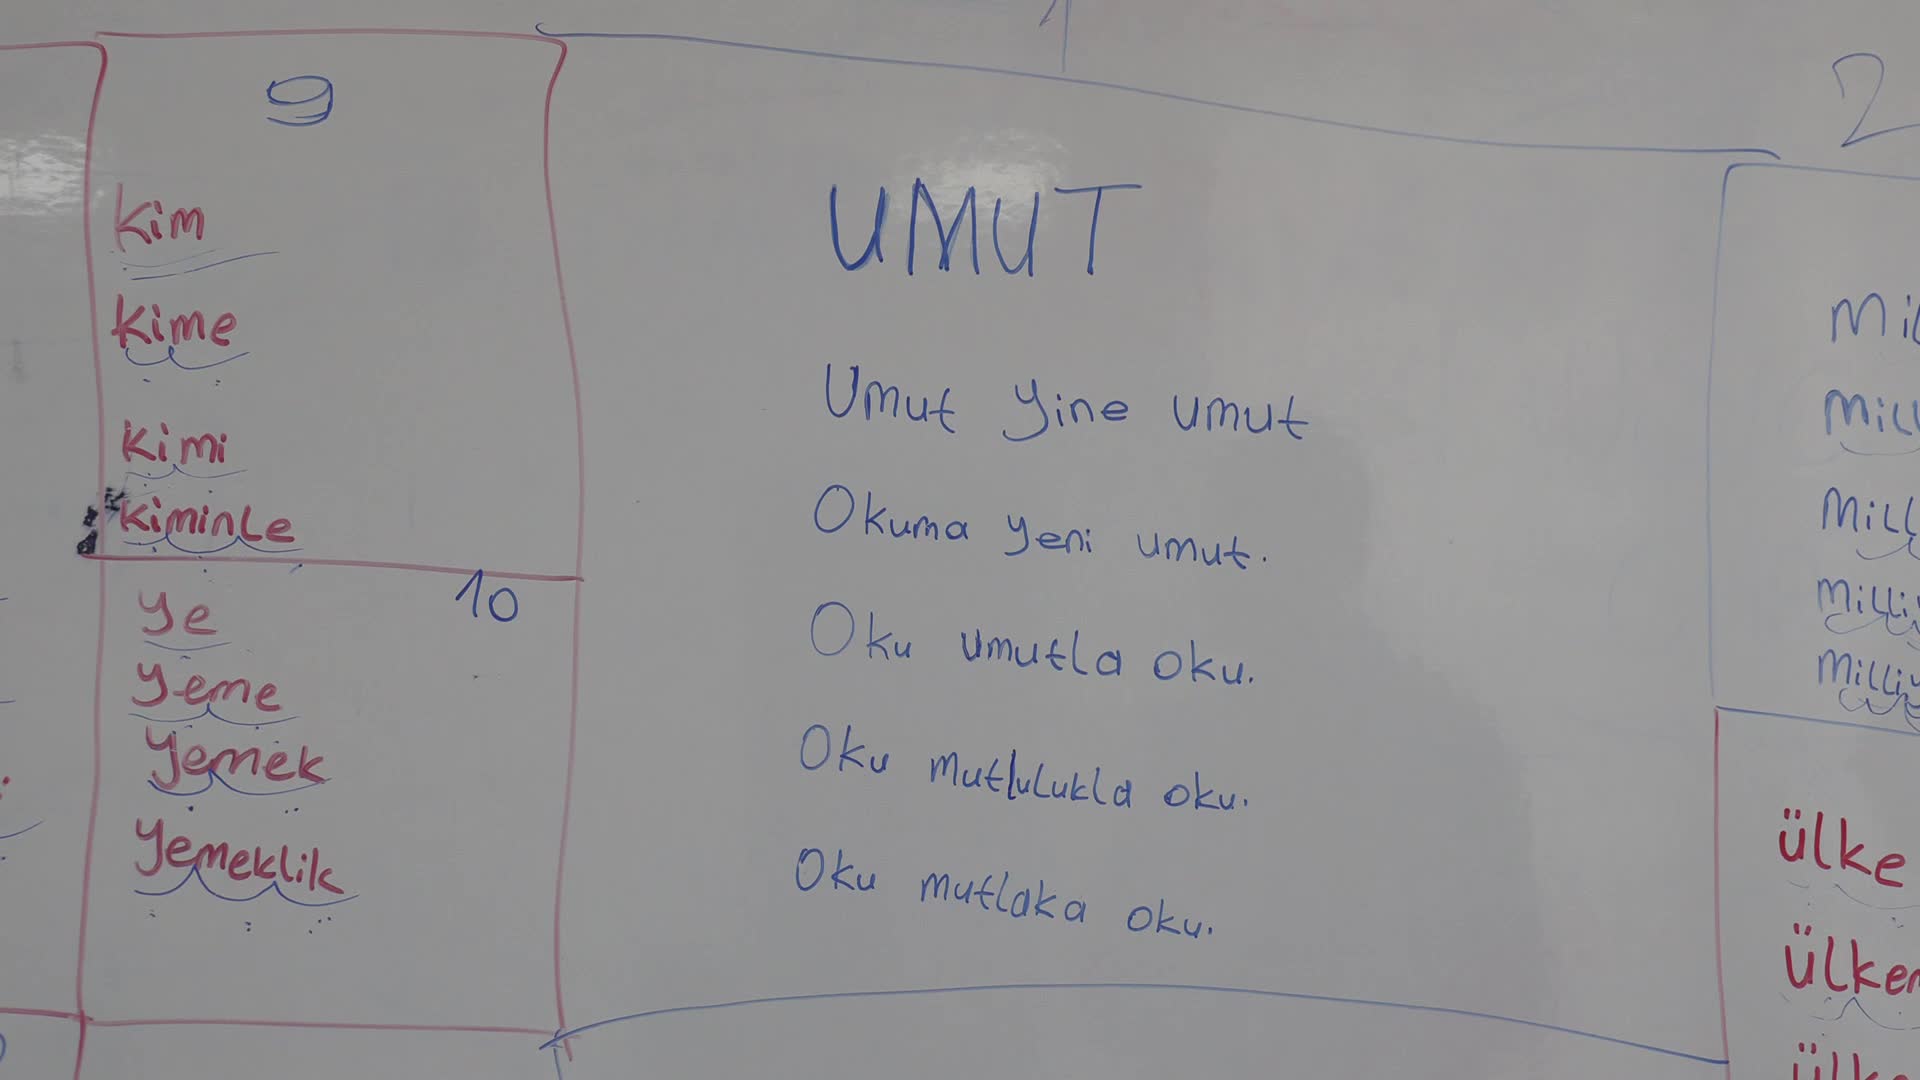 9
kim
kime
kimi
kiminle
10
ye
yeme
yemek
yemeklik
1
UMUT
Umut yine umut
Okuma yeni umut.
Oku umutla oku.
Oku mutlulukla oku.
Oku mutlaka oku.
2
ülke